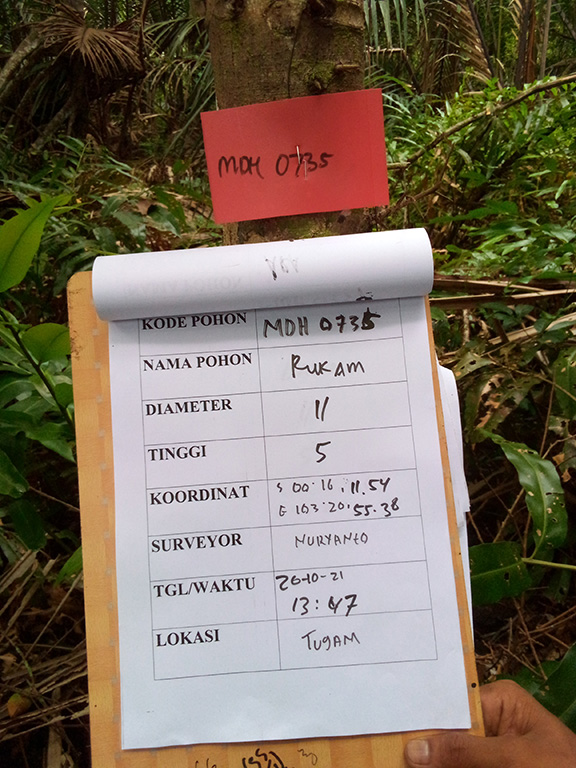 MDH 0735
KODE POHON MDH 0735
NAMA POHON RUKAM
DIAMETER 11
TINGGI 5
KOORDINAT S 00.16.11.54
E 103.20.55.38
SURVEYOR NURYANTO
TGL/WAKTU 20-10-21
13:47
LOKASI TUGAM